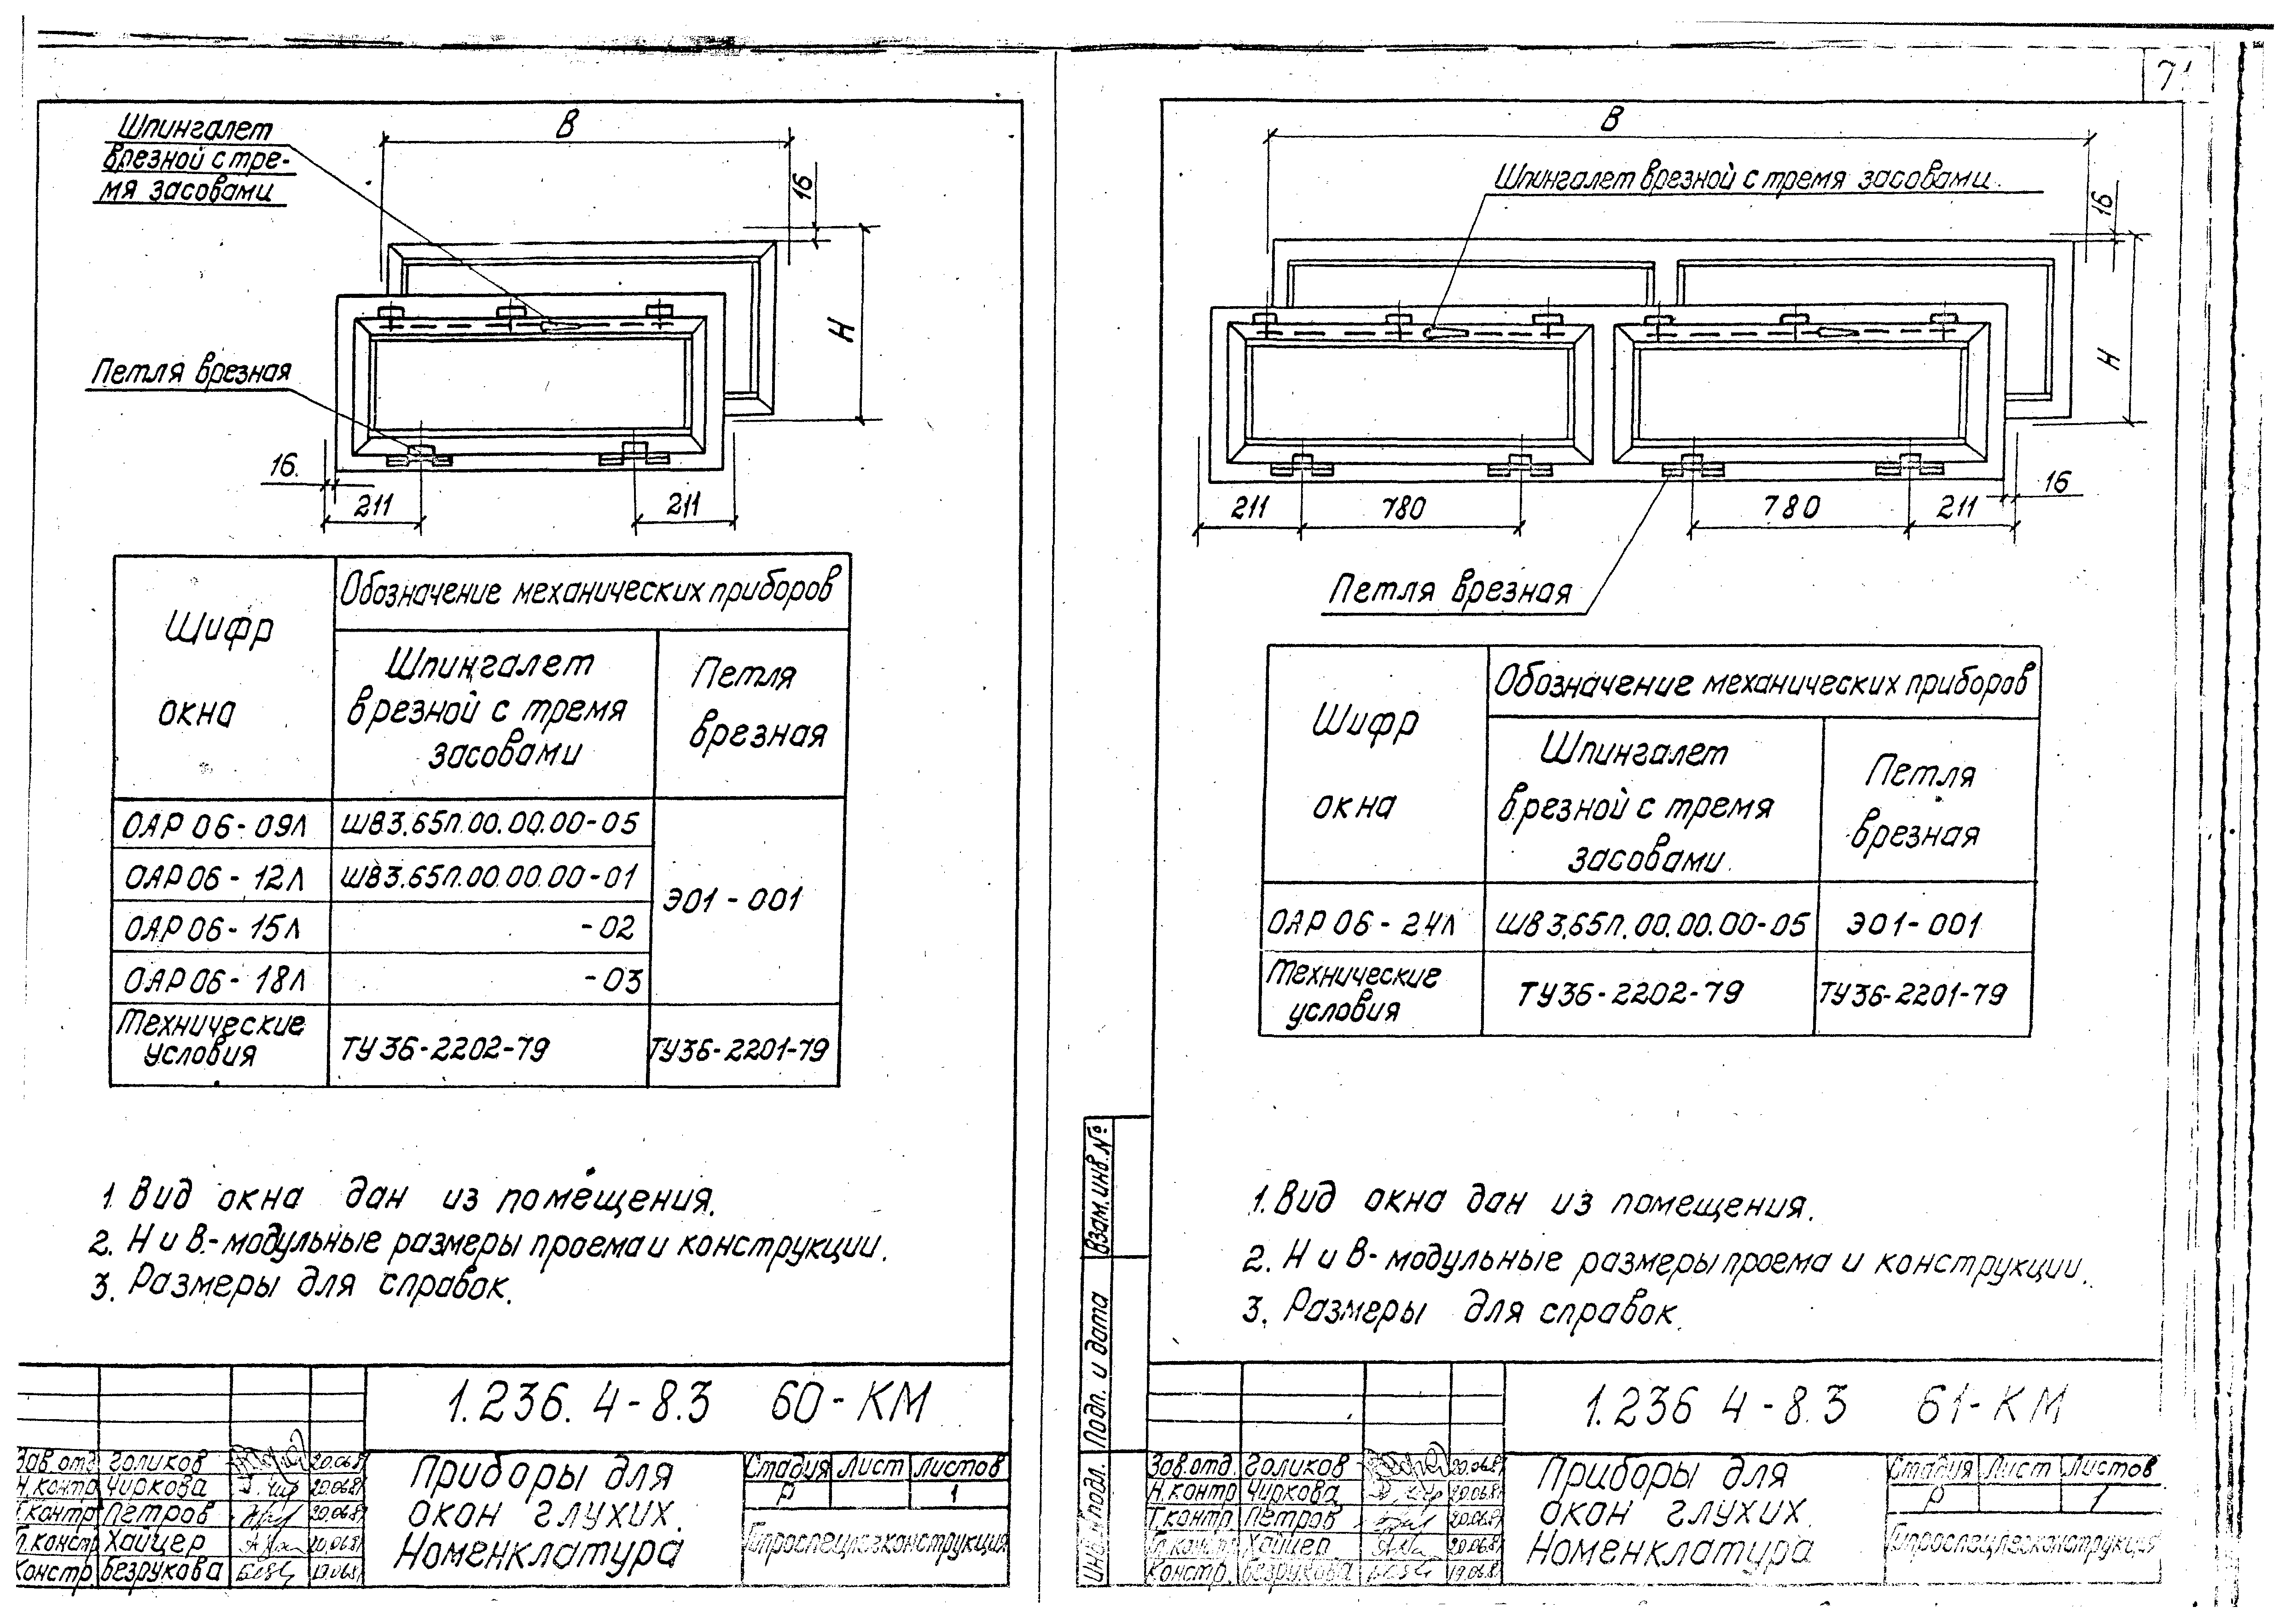 Шпингалет
врезной с тре-
мя засовами
В
16
Н
Петля врезная
16
211
211
Шифр
окна
Обозначение механических приборов
Шпингалет
врезной с тремя
засовами
Петля
врезная
ОАР 06-09Л ШВ3.65П.00.00.00-05
ОАР 06-12Л ШВ3.65П.00.00.00-01
Э01-001
ОАР 06-15Л -02
ОАР 06-18Л -03
Технические
условия
ТУ36-2202-79 ТУ36-2201-79
1 Вид окна дан из помещения.
2. Н и В-модульные размеры проема и конструкции.
3. Размеры для справок.
1.236.4-8.3 60-КМ
Зав.отд. Голиков 20.06.8
Н.контр Чиркова 20.06.8
Т.контр Петров 20.06.8
Гл.констр Хайцер 20.06.8
Констр. Безрукова 19.06.8
Приборы для
окон глухих.
Номенклатура
Стадия Лист Листов
Р 1
Гипроспецлегконструкция
71
В
Шпингалет врезной с тремя засовами.
16
Н
16
211 780 780 211
Петля врезная
Шифр
окна
Обозначение механических приборов
Шпингалет
врезной с тремя
засовами.
Петля
врезная
ОАР 06-24Л ШВ3.65П.00.00.00-05 Э01-001
Технические
условия
ТУ36-2202-79 ТУ36-2201-79
1. Вид окна дан из помещения.
2. Н и В-модульные размеры проема и конструкции.
3. Размеры для справок.
Взам.инв.№
Подп. и дата
Инв.№ подл.
1.236 4-8.3 61-КМ
Зав.отд. Голиков 20.06.8
Н.контр Чиркова 20.06.8
Т.контр. Петров 20.06.8
Гл.констр Хайцер 20.06.8
Констр. Безрукова 19.06.8
Приборы для
окон глухих.
Номенклатура
Стадия Лист Листов
Р 1
Гипроспецлегконструкция